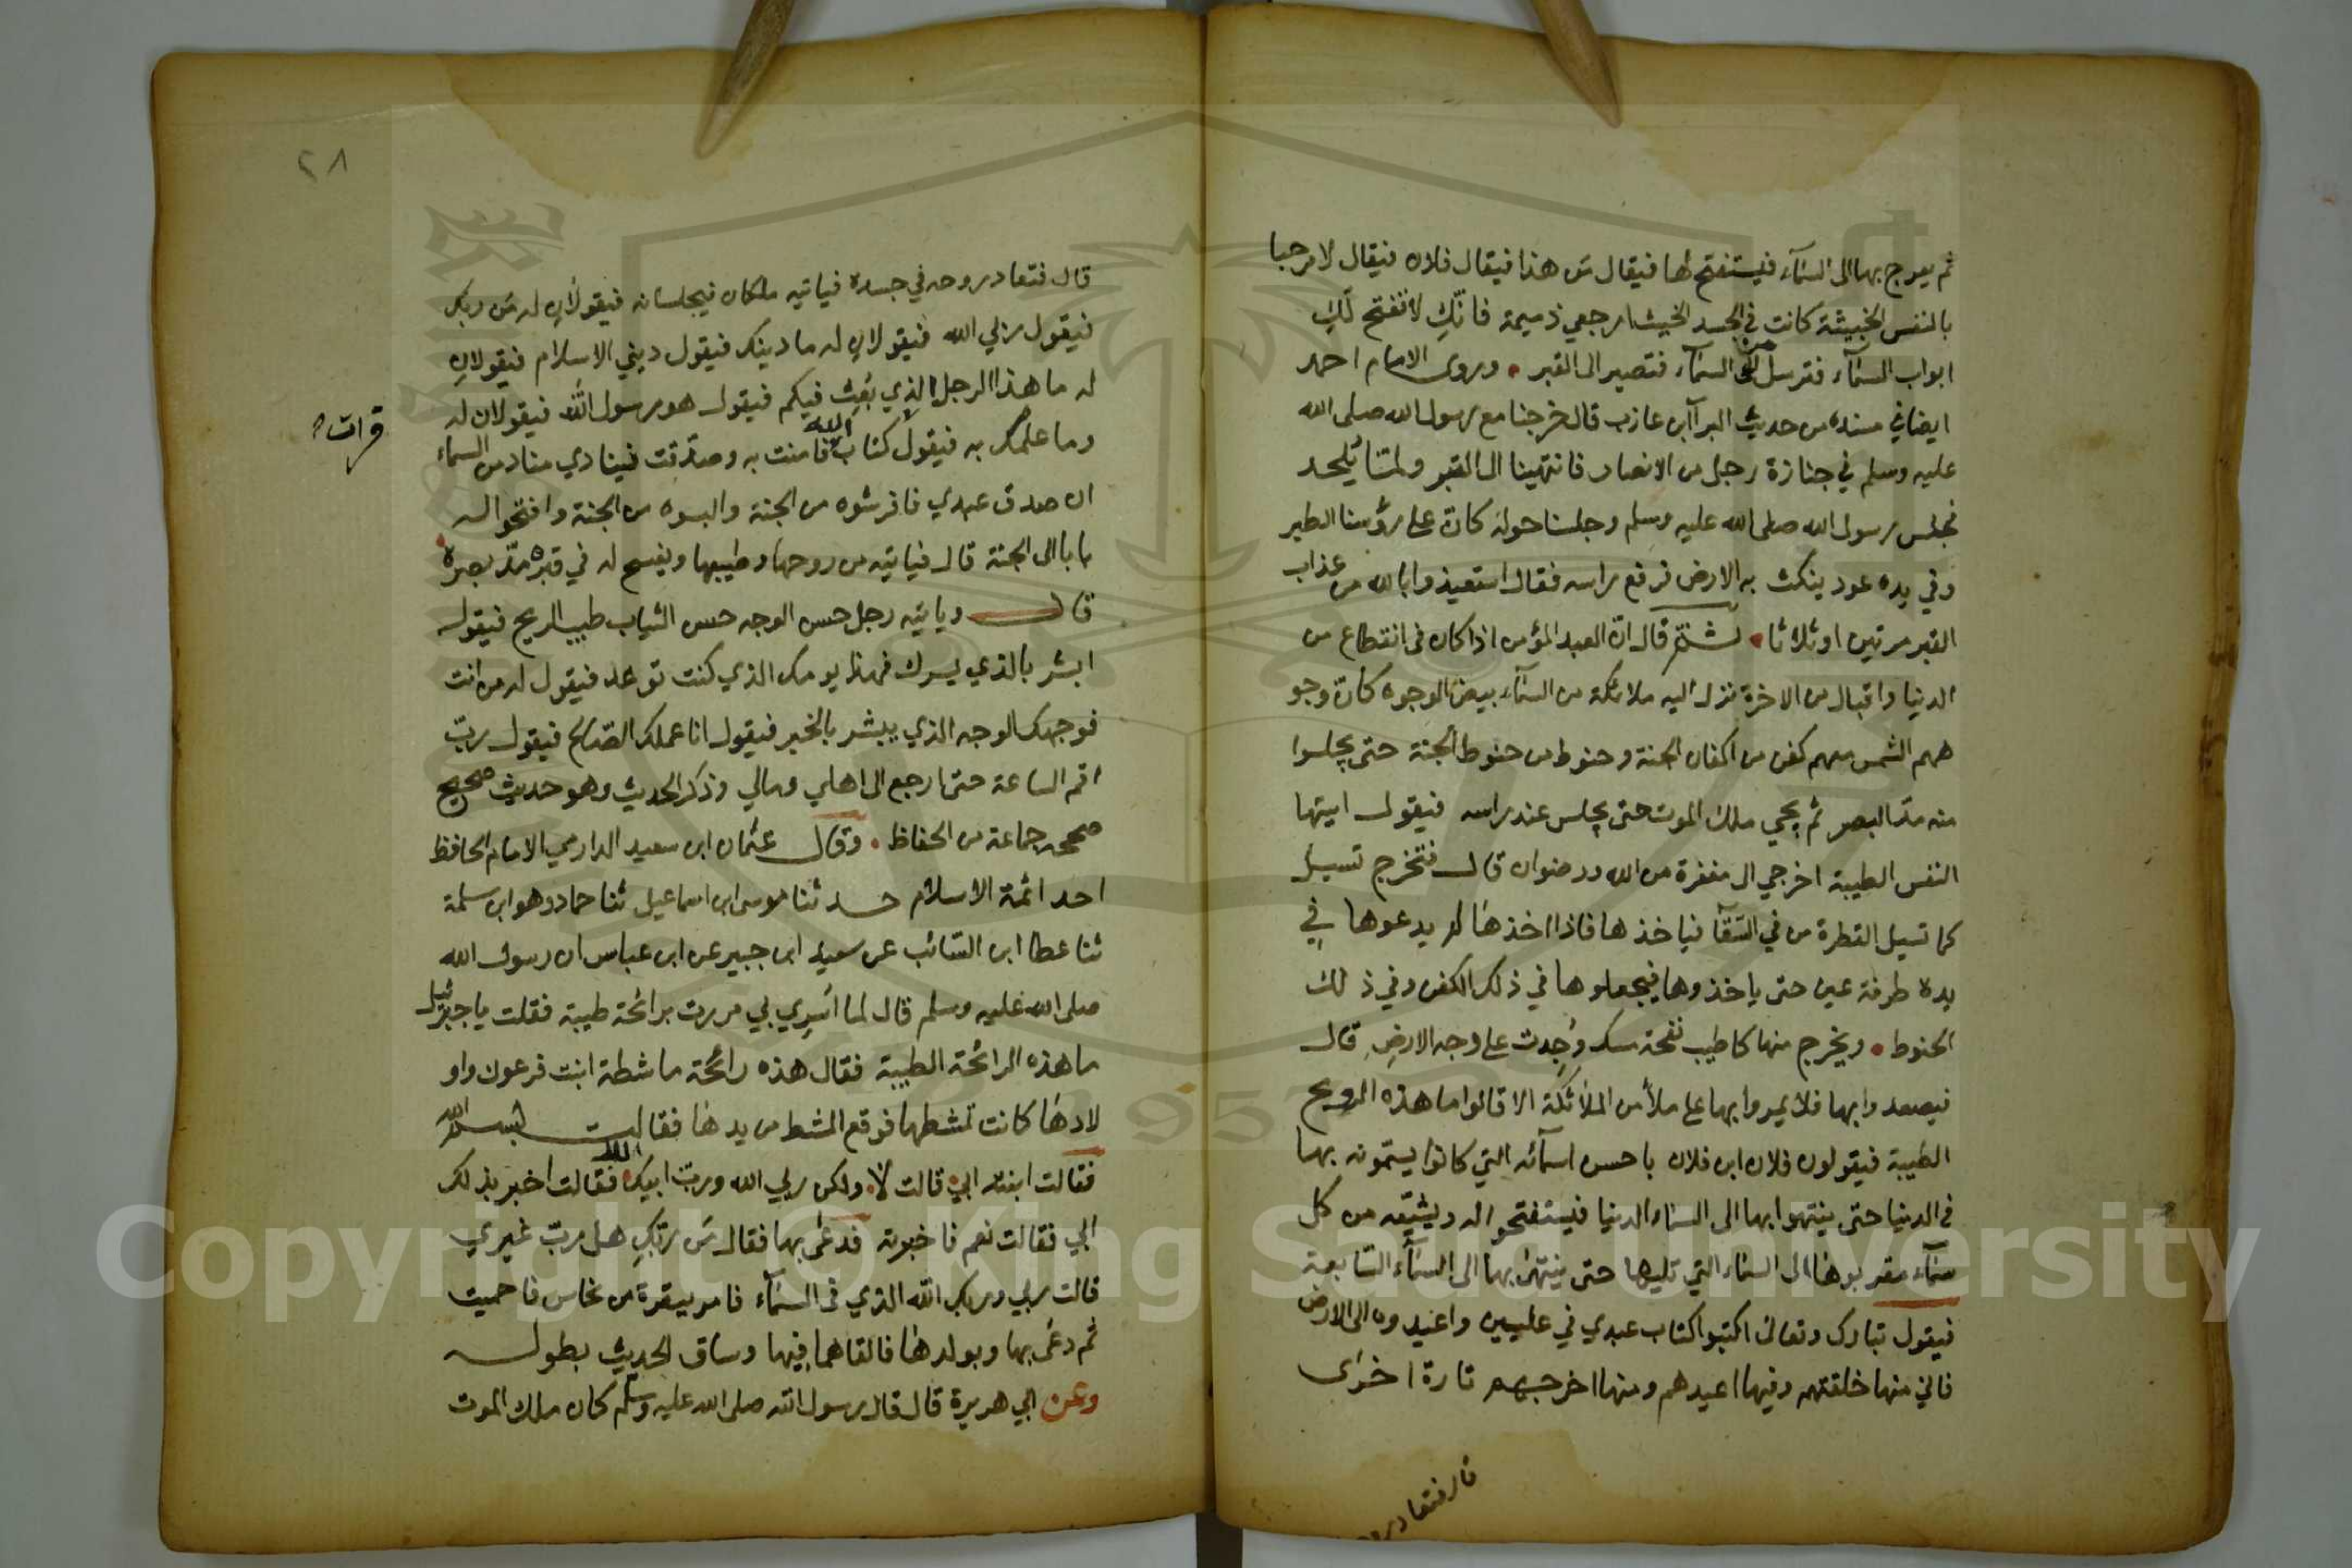 ثم يعرج بها الى السمآء فيستفتح لها فيقال مَن هذا فيقال فلان فيقال لا مرحبا
بالنفس الخبيثة كانت في الجسد الخبيث ارجعي ذميمة فانّكِ لا تفتح لَكِ
ابواب السمآء فترسل من السمآء فتصير الى القبر • وروى الامام احمد
ايضا في مسنده من حديث البرآ ابن عازب قال خرجنا مع رسول الله صلى الله
عليه وسلم في جنازة رجل من الانصار فانتهينا الى القبر ولمّا يُلحد
فجلس رسول الله صلى الله عليه وسلم وجلسنا حوله كانّ على رؤسنا الطير
وفي يده عود ينكث به الارض فرفع راسه فقال استعيذوا بالله من عذاب
القبر مرتين او ثلاثا • ثمّ قال انّ العبد المؤمن اذا كان في انقطاع من
الدنيا واقبال من الاخرة نزل اليه ملائكة من السمآء بيض الوجوه كانّ وجو
ههم الشمس معهم كفن من اكفان الجنة وحنوط من حنوط الجنة حتى يجلسوا
منه مدّ البصر ثم يجي ملك الموت حتى يجلس عند راسه فيقول ايتها
النفس الطيبة اخرجي الى مغفرة من الله ورضوان قال فتخرج تسيل
كما تسيل القطرة من في السّقآ فياخذها فاذا اخذها لم يدعوها في
يده طرفة عين حتى ياخذوها فيجعلوها في ذلك الكفن وفي ذلك
الحنوط • ويخرج منها كاطيب نفحة مسك وُجِدت على وجه الارضِ قال
فيصعدوا بها فلا يمروا بها على ملأ من الملائكة الا قالوا ما هذه الريح
الطيبة فيقولون فلان ابن فلان باحسن اسمآئه التي كانوا يسمّونه بها
في الدنيا حتى ينتهوا بها الى السماء الدنيا فيستفتحوا له ويشيّعه من كل
سمآء مقربوها الى السماء التي تليها حتى ينتهى بها الى السمآء السّابعة
فيقول تبارك وتعالى اكتبوا كتاب عبدي في عليين واعيدوه الى الارض
فاني منها خلقتهم وفيها اعيدهم ومنها اخرجهم تارة اخرى
قال فتعاد رو
٢٨
قال فتعاد روحه في جسده فياتيه ملكان فيجلسانه فيقولانِ له مَن ربك
فيقول ربي الله فيقولانِ له ما دينك فيقول ديني الاسلام فيقولانِ
له ما هذا الرجل الذي بُعِث فيكم فيقول هو رسول الله فيقولان له
وما علمك به فيقول قرات كتاب الله فامنت به وصدّقت فينادي مناد من السماء
ان صدق عبدي فافرشوه من الجنة والبسوه من الجنة وافتحوا له
بابا الى الجنة قال فياتيه من روحها وطيبها ويفسح له في قبره مدّ بصره
قال وياتيه رجل حسن الوجه حسن الثياب طيب الريح فيقول
ابشر بالذي يسرك فهذا يومك الذي كنت توعد فيقول له من انت
فوجهك الوجه الذي يبشر بالخير فيقول انا عملك الصّالح فيقول ربّ
اقم الساعة حتى ارجع الى اهلي ومالي وذكر الحديث وهو حديث صحيح
صححه جماعة من الحفاظ • وقال عثمان ابن سعيد الدارمي الامام الحافظ
احد ائمة الاسلام حدثنا موسى ابن اسماعيل ثنا حماد وهو ابن سلمة
ثنا عطا ابن السّائب عن سعيد ابن جبير عن ابن عباس ان رسول الله
صلى الله عليه وسلم قال لما اُسرِي بي مررت برائحة طيبة فقلت يا جبرئيل
ما هذه الرائحة الطيبة فقال هذه رائحة ماشطة ابنت فرعون واو
لادها كانت تمشطها فوقع المشط من يدها فقالت بسم الله
فقالت ابنته ابي قالت لا • ولكن ربي الله وربّ ابيك الله فقالت اخبر بذلك
ابي فقالت نعم فاخبرته فدعى بها فقال مَن ربّكِ هل ربّ غيري
قالت ربي وربك الله الذي في السمآء فامر ببقرة من نحاس فاحميت
ثم دعى بها وبولدها فالقاهما فيها وساق الحديث بطوله
وعن ابي هريرة قال قال رسول الله صلى الله عليه وسلم كان ملك الموت
Copyright © King Saud University